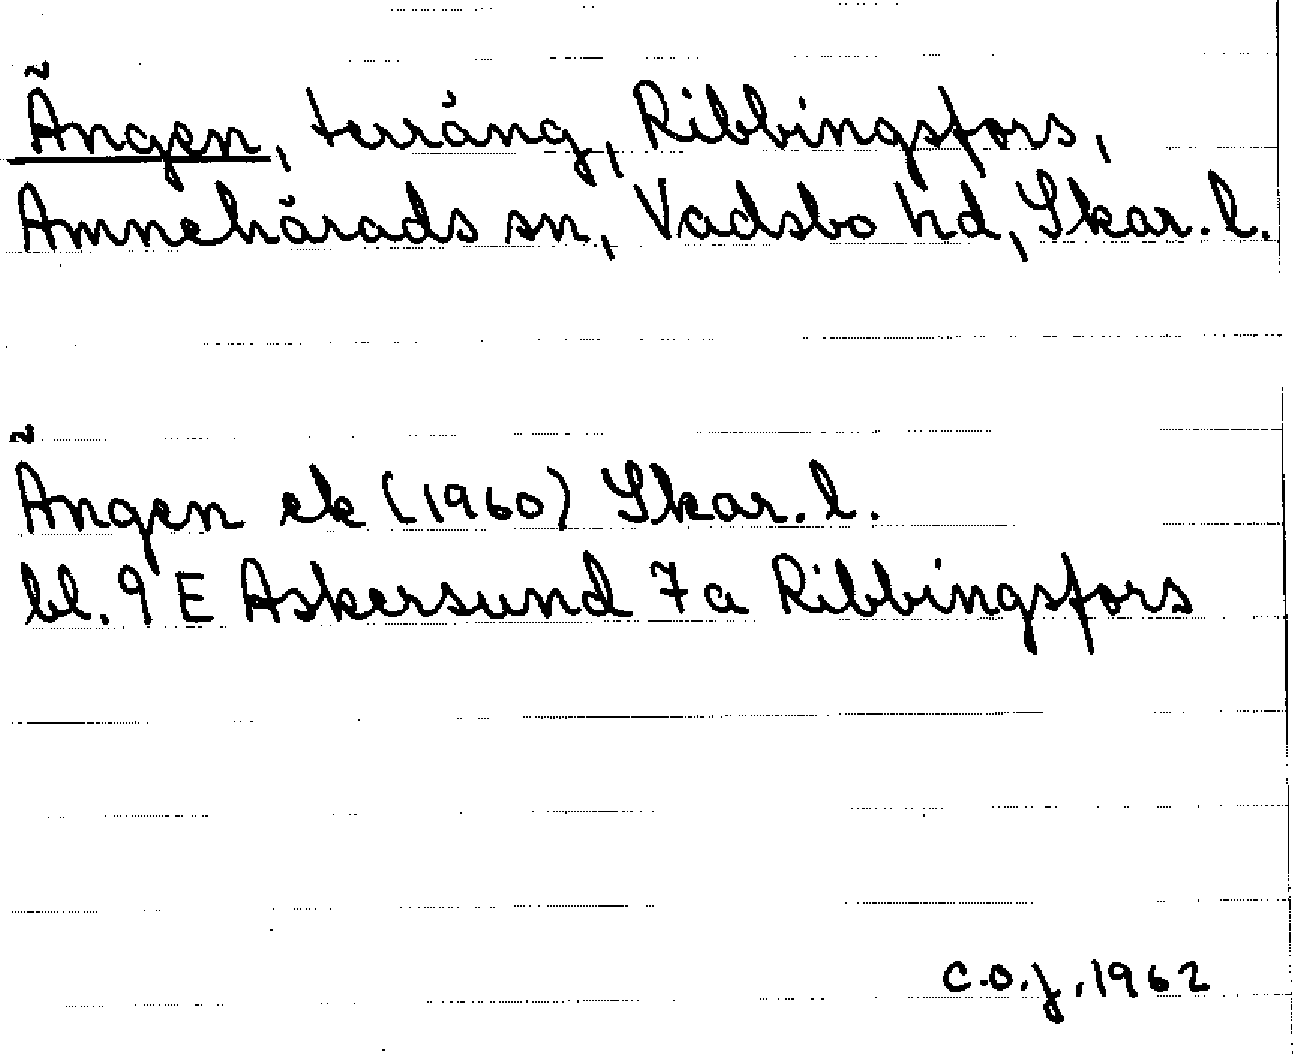 Ängen, terräng, Ribbingsfors,
Amnehärads sn, Vadsbo hd, Skar. l.
Ängen ek (1960) Skar. l.
bl. 9 E Askersund 7a Ribbingsfors
C.O.J. 1962